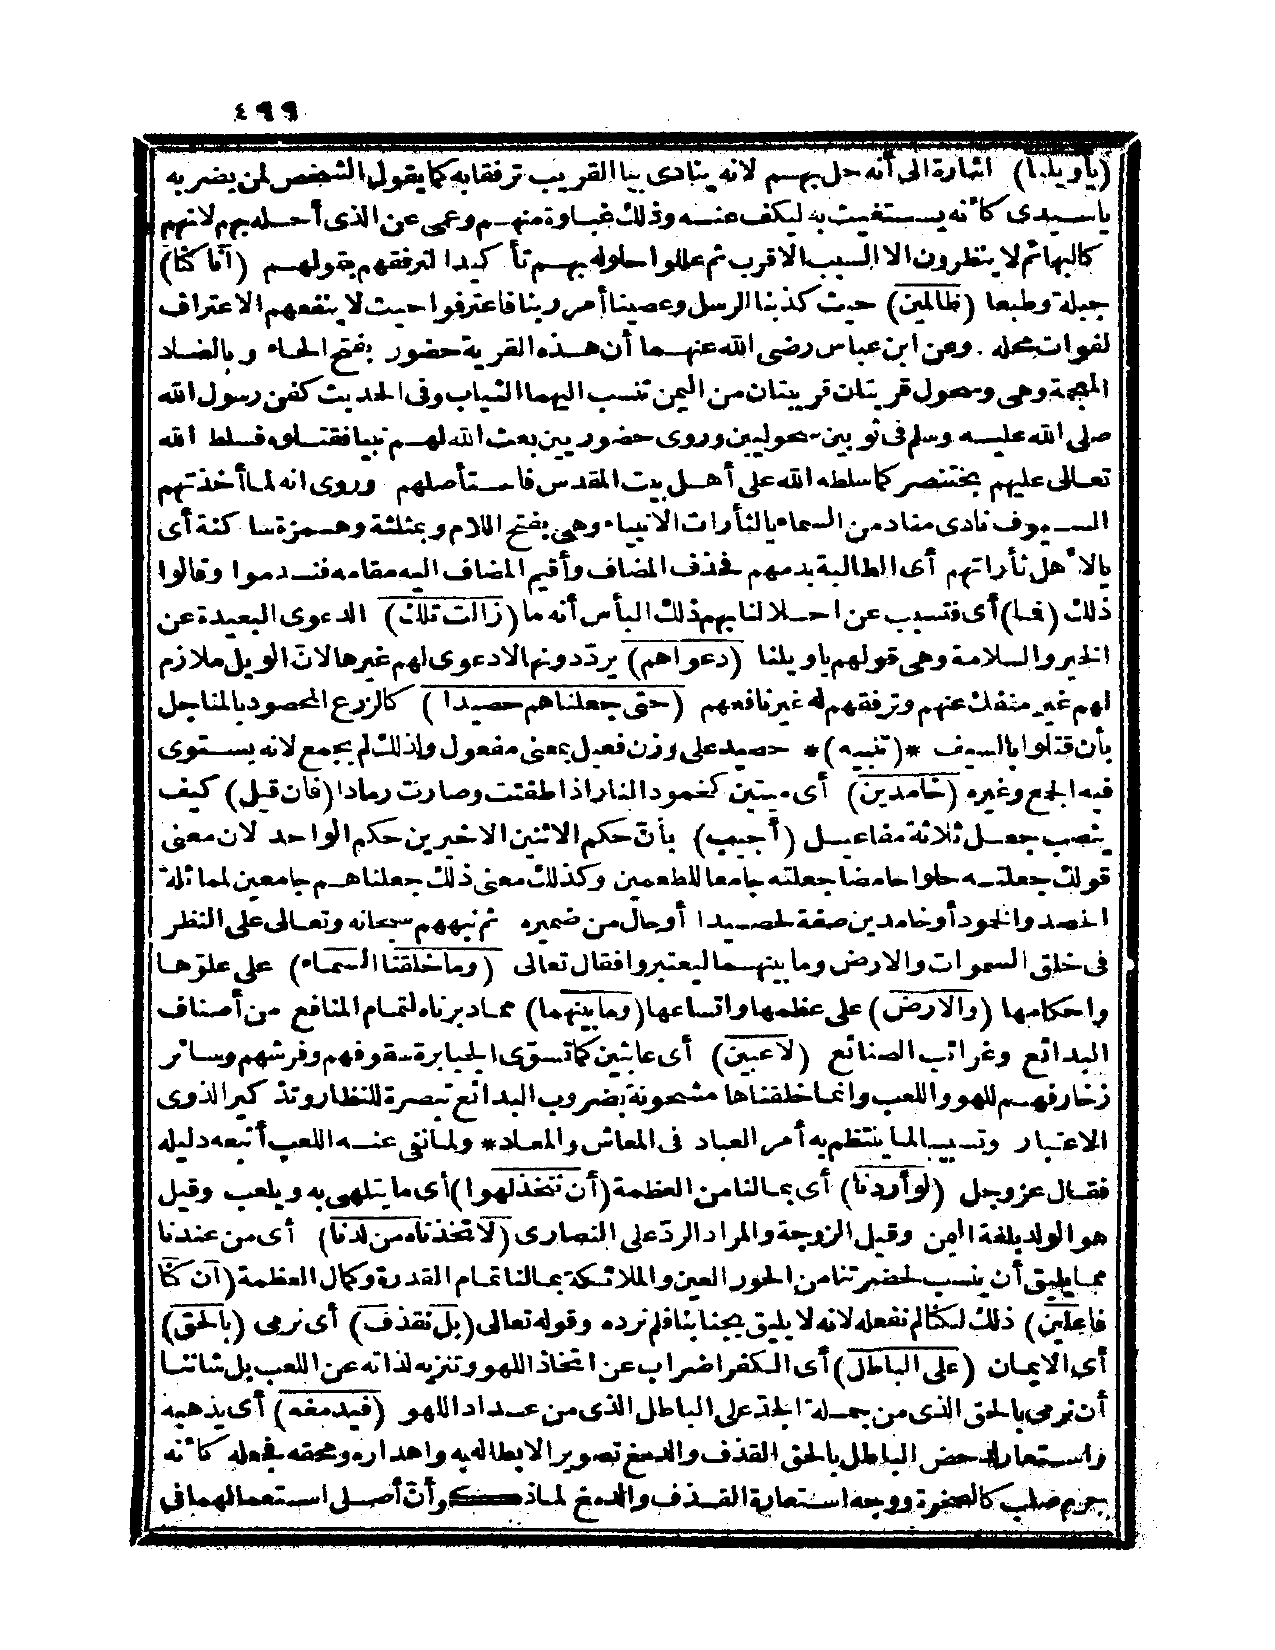 ٤٩٩
(ياويلنا) اشارة الى أنه حل بهم لانه ينادى بيا القريب ترفقا به كما يقول الشخص لمن يضربه
ياسيدى كأنه يستغيث به ليكف عنه وذلك غباوة منهم وعمى عن الذى أحله بهم لانهم
كالبهائم لا ينظرون الا السبب الاقرب ثم عللوا حلوله بهم تأكيدا لترفقهم بقولهم (انا كنا)
جبلة وطبعا (ظالمين) حيث كذبنا الرسل وعصينا أمر ربنا فاعترفوا حيث لا ينفعهم الاعتراف
لفوات محله . وعن ابن عباس رضى الله عنهما أن هذه القرية حضور بفتح الحاء وبالضاد
المعجمة وهى وسحول قريتان قريبتان من اليمن تنسب اليهما الثياب وفى الحديث كفن رسول الله
صلى الله عليه وسلم فى ثوبين سحوليين وروى حضوريين بعث الله لهم نبيا فقتلوه فسلط الله
تعالى عليهم بختنصر كما سلطه الله على أهل بيت المقدس فاستأصلهم وروى انه لما أخذتهم
السيوف نادى مناد من السماء يا لثأرات الانبياء وهى بفتح اللام وبمثلثة وهمزة ساكنة أى
يالأهل ثأراتهم أى الطالبة بدمهم فحذف المضاف وأقيم المضاف اليه مقامه فندموا وقالوا
ذلك (فما) أى فتسبب عن احلالنا بهم ذلك البأس أنه ما (زالت تلك) الدعوى البعيدة عن
الخير والسلامة وهى قولهم ياويلنا (دعواهم) يرددونها لا دعوى لهم غيرها لانّ الويل ملازم
لهم غير منفك عنهم وترفقهم له غير نافعهم (حتى جعلناهم حصيدا) كالزرع المحصود بالمناجل
بأن قتلوا بالسيف *(تنبيه)* حصيد على وزن فعيل بمعنى مفعول ولذلك لم يجمع لانه يستوى
فيه الجمع وغيره (خامدين) أى ميتين كخمود النار اذا طفئت وصارت رمادا (فان قيل) كيف
ينصب جعل ثلاثة مفاعيل (أجيب) بأنّ حكم الاثنين الاخيرين حكم الواحد لان معنى
قولك جعلته حلوا حامضا جعلته جامعا للطعمين وكذلك معنى ذلك جعلناهم جامعين لمماثلة
الحصد والخمود أو خامدين صفة لحصيدا أو حال من ضميره ثم نبههم سبحانه وتعالى على النظر
فى خلق السموات والارض وما بينهما ليعتبروا فقال تعالى (وما خلقنا السماء) على علوّها
واحكامها (والارض) على عظمها واتساعها (وما بينهما) مما دبرناه لتمام المنافع من أصناف
البدائع وغرائب الصنائع (لاعبين) أى عابثين كما تسوّى الجبابرة سقوفهم وفرشهم وسائر
زخارفهم للهو واللعب وانما خلقناها مشحونة بضروب البدائع تبصرة للنظار وتذكيرا لذوى
الاعتبار وتسبيبا لما ينتظم به أمر العباد فى المعاش والمعاد* ولما نفى عنه اللعب أتبعه دليله
فقال عز وجل (لو أردنا) أى بما لنا من العظمة (أن نتخذ لهوا) أى ما يتلهى به ويلعب وقيل
هو الولد بلغة اليمن وقيل الزوجة والمراد الردّ على النصارى (لاتخذناه من لدنا) أى من عندنا
مما يليق أن ينسب لحضرتنا من الحور العين والملائكة بما لنا تمام القدرة وكمال العظمة (ان كنا
فاعلين) ذلك لكنا لم نفعله لانه لا يليق بجنابنا فلم نرده وقوله تعالى (بل نقذف) أى نرمى (بالحق)
أى الايمان (على الباطل) أى الكفر اضراب عن اتخاذ اللهو وتنزيه لذاته عن اللعب بل شاننا
أن نرمى بالحق الذى من جملة الجدّ على الباطل الذى من عداد اللهو (فيدمغه) أى يذهبه
واستعار لدحض الباطل بالحق القذف والدمغ تصويرا لابطاله به واهداره ومحقه فجعله كأنه
جرم صلب كالصخرة ووجه استعارة القذف والدمغ لما ذكر وأنّ أصل استعمالهما فى